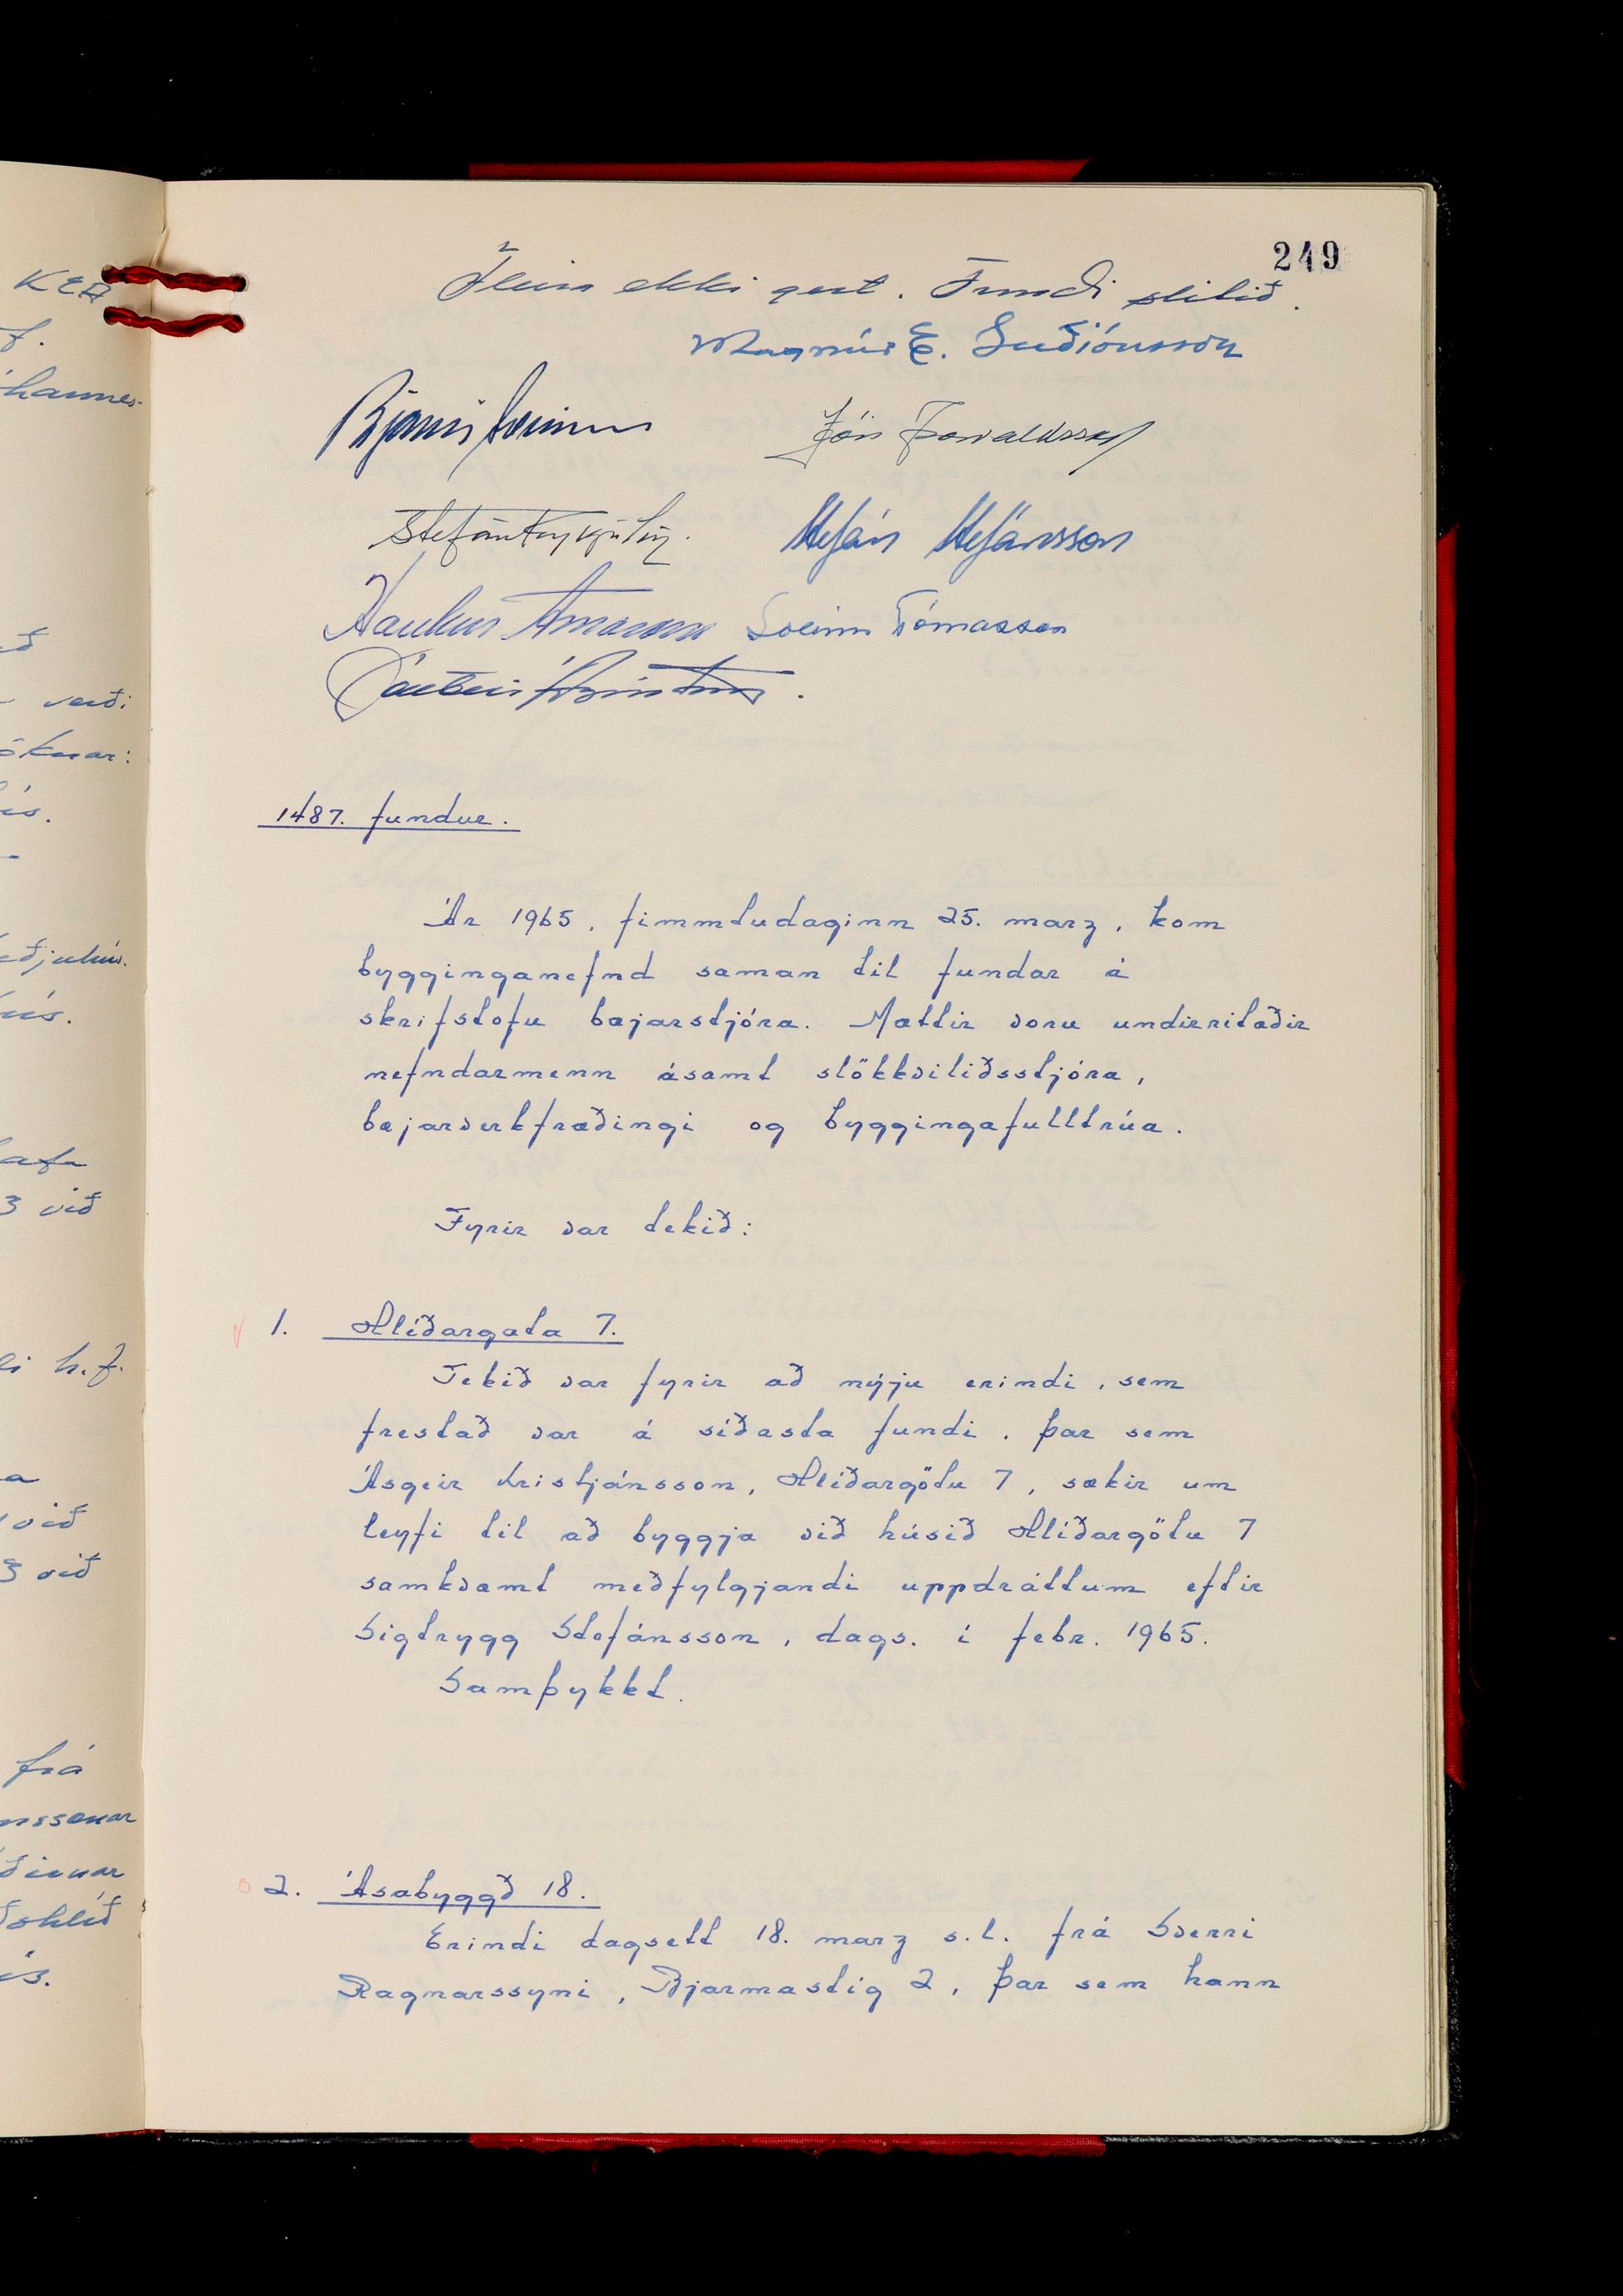 249
Fleira ekki gert. Fundi slitið.
Magnús E. Guðjónsson
Bjarni Einarsson
Jón Þorvaldsson
Stefán Reykjalín
Stefán Stefánsson
Haukur Árnason Sveinn Tómasson
1487. fundur.
Ár 1965, fimmtudaginn 25. marz, kom
bygginganefnd saman til fundar á
skrifstofu bæjarstjóra. Mættir voru undirritaðir
nefndarmenn ásamt slökkviliðsstjóra,
bæjarverkfræðingi og byggingafulltrúa.
Fyrir var tekið:
1. Hlíðargata 7.
Tekið var fyrir að nýju erindi, sem
frestað var á síðasta fundi, þar sem
Ásgeir Kristjánsson, Hlíðargötu 7, sækir um
leyfi til að byggja við húsið Hlíðargötu 7
samkvæmt meðfylgjandi uppdráttum eftir
Sigtrygg Stefánsson, dags. í febr. 1965.
Samþykkt.
2. Ásabyggð 18.
Erindi dagsett 18. marz s.l. frá Sverri
Ragnarssyni, Bjarmastíg 2, þar sem hann